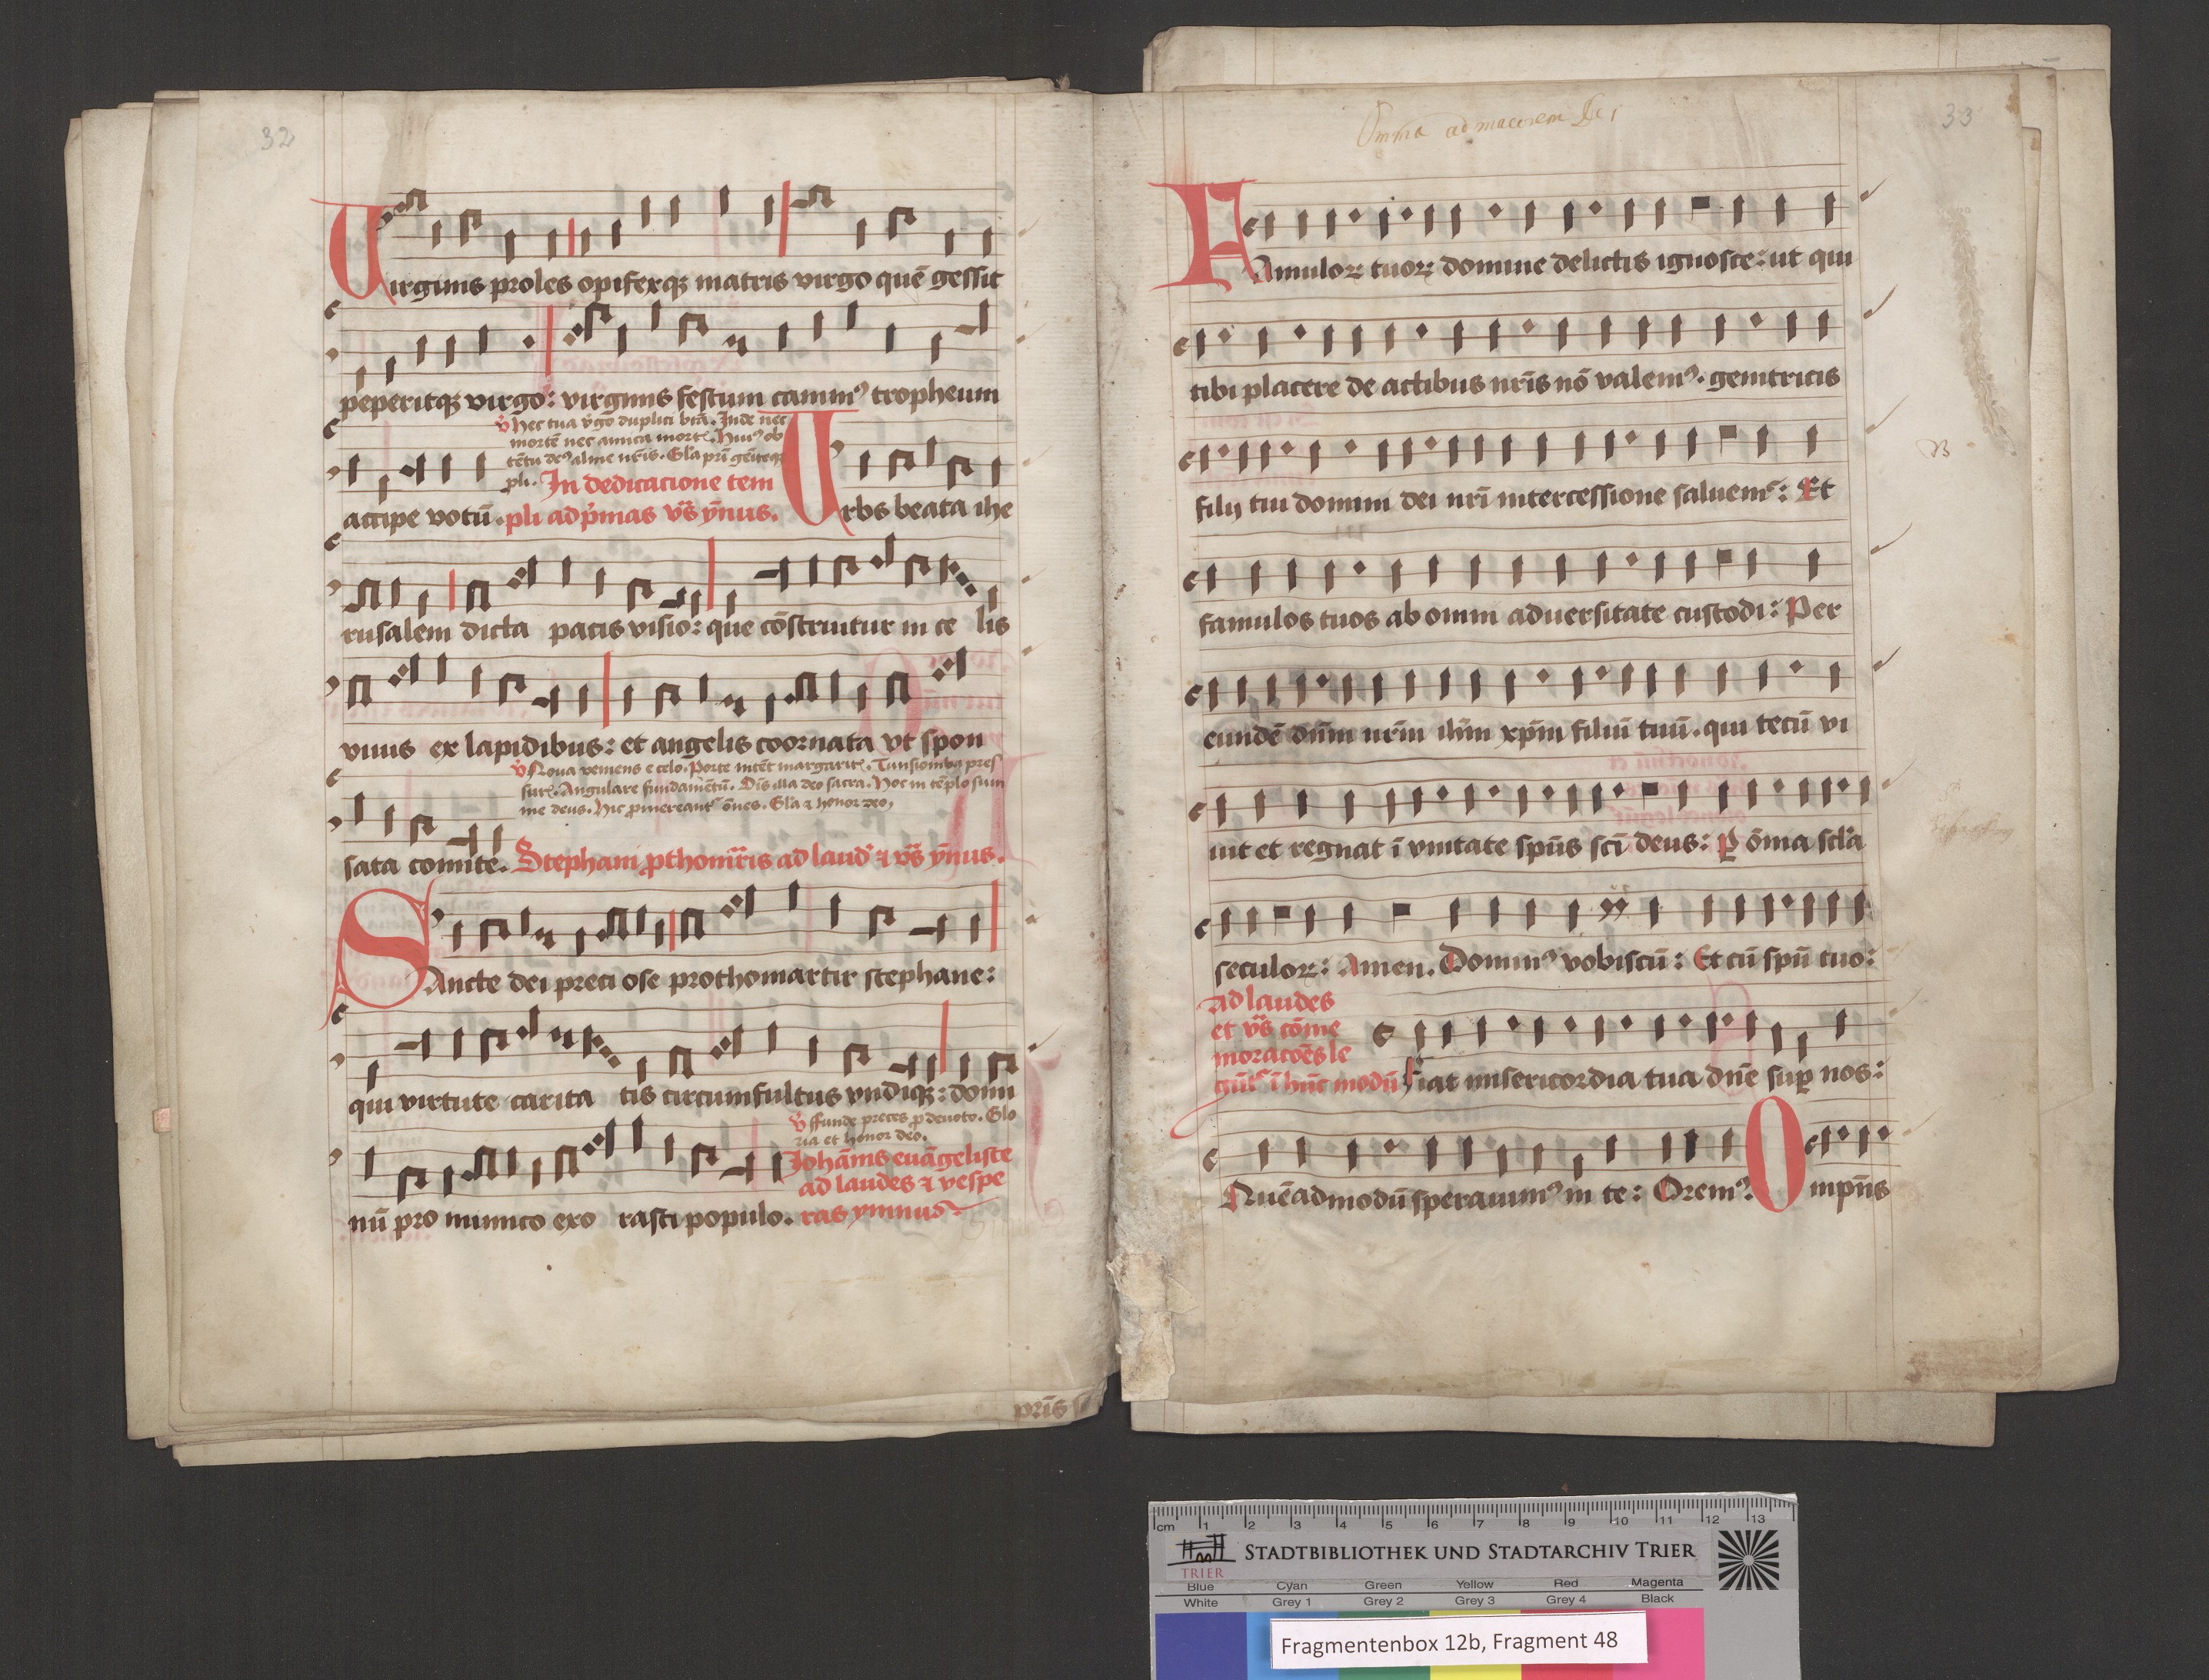 32
Virginis proles opifexqꝫ matris virgo quē gessit
peperitqꝫ virgo: virginis festum canimꝰ tropheum
v̊ Hec tua v̊go duplici bt̄a. Inde nec
mortē nec amica mort᷒. Huiꝰ ob
tētu deꝰ alme nr̄is. Gla pr̄i geīteqꝫ
pli. In dedicacione tem
accipe votū. pli ad p̄mas vs̄ ȳnus. Vrbs beata ihe
rusalem dicta pacis visio: que cōstruitur in ce lis
viuis ex lapidibus: et angelis coornata vt spon
v̊ Noua veniens e celo. Porte nitēt margarit᷒. Tunsionibꝫ pres
sur᷒. Angulare fundamētū. Oīs illa deo sacra. Hoc in tēplo sum
me deus. Hic p̄mereantᷣ ōnes. Gla ⁊ honor deo,
sata comite. Stephani ꝓthomr̄ris ad laud᷒ ⁊ vs̄ ȳnus.
SAncte dei preci ose prothomartir stephane:
qui virtute carita tis circumfultus vndiqꝫ: domi
v̊ ffunde preces ꝓ deuoto. Glo
ria et honor deo.
Johānis euāgeliste
ad laudes ⁊ vespe
nū pro inimico exo rasti populo. ras ymnus
pr̄is
33
Omnia ad
FAmuloꝝ tuoꝝ domine delictis ignosce: ut qui
tibi placere de actibus nr̄is nō valemꝰ. genitricis
filij tui domini dei nr̄i intercessione saluemᷣ: Et
famulos tuos ab omni aduersitate custodi: Per
eundē dn̄m nr̄m ihm̄ xp̄m filiū tuū. qui tecū vi
uit et regnat ī vnitate spūs scī deus: ꝑ ōma scl̄a
seculoꝝ: Amen. Dominꝰ vobiscū: Et cū spū tuo:
ad laudes
et vs̄ cōme
moracōēs le
gūtᷣ ī hūc modū fiat misericordia tua dn̄e suꝑ nos:
Quēadmodū sperauimꝰ in te: Oremꝰ. Omp̄ns
cm 1 2 3 4 5 6 7 8 9 10 11 12 13
TRIER
STADTBIBLIOTHEK UND STADTARCHIV TRIER
Blue Cyan Green Yellow Red Magenta
White Grey 1 Grey 2 Grey 3 Grey 4 Black
Fragmentenbox 12b, Fragment 48